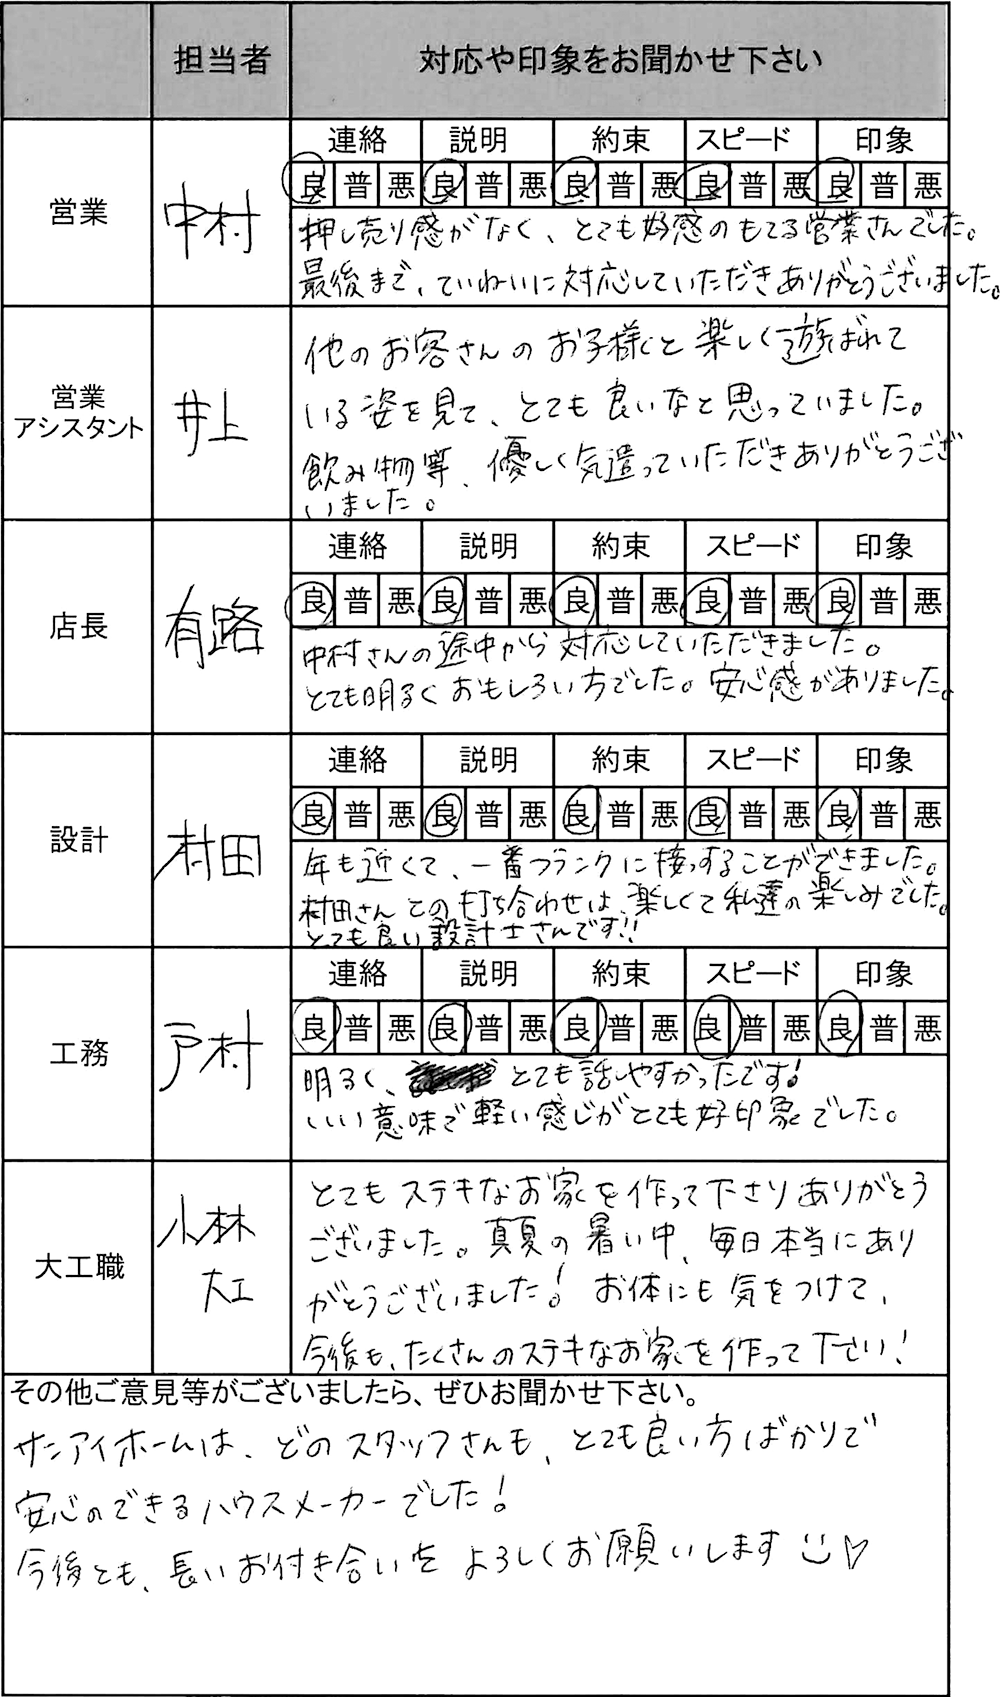 担当者 対応や印象をお聞かせ下さい
連絡 説明 約束 スピード 印象
良 普 悪 良 普 悪 良 普 悪 良 普 悪 良 普 悪
営業 中村
押し売り感がなく、とても好感のもてる営業さんでした。
最後まで、ていねいに対応していただきありがとうございました。
営業
アシスタント 井上
他のお客さんのお子様と楽しく遊ばれて
いる姿を見て、とても良いなと思っていました。
飲み物等、優しく気遣っていただきありがとうござ
いました。
連絡 説明 約束 スピード 印象
良 普 悪 良 普 悪 良 普 悪 良 普 悪 良 普 悪
店長 有路
中村さんの途中から対応していただきました。
とても明るくおもしろい方でした。安心感がありました。
連絡 説明 約束 スピード 印象
良 普 悪 良 普 悪 良 普 悪 良 普 悪 良 普 悪
設計 村田
年も近くて、一番フランクに接することができました。
村田さんとの打ち合わせは、楽しくて私達の楽しみでした。
とても良い設計士さんです!!
連絡 説明 約束 スピード 印象
良 普 悪 良 普 悪 良 普 悪 良 普 悪 良 普 悪
工務 戸村
明るく、とても話しやすかったです!
いい意味で軽い感じがとても好印象でした。
大工職 小林
大工
とてもステキなお家を作って下さりありがとう
ございました。真夏の暑い中、毎日本当にあり
がとうございました! お体にも気をつけて、
今後も、たくさんのステキなお家を作って下さい!
その他ご意見等がございましたら、ぜひお聞かせ下さい。
サンアイホームは、どのスタッフさんも、とても良い方ばかりで
安心のできるハウスメーカーでした!
今後とも、長いお付き合いをよろしくお願いします